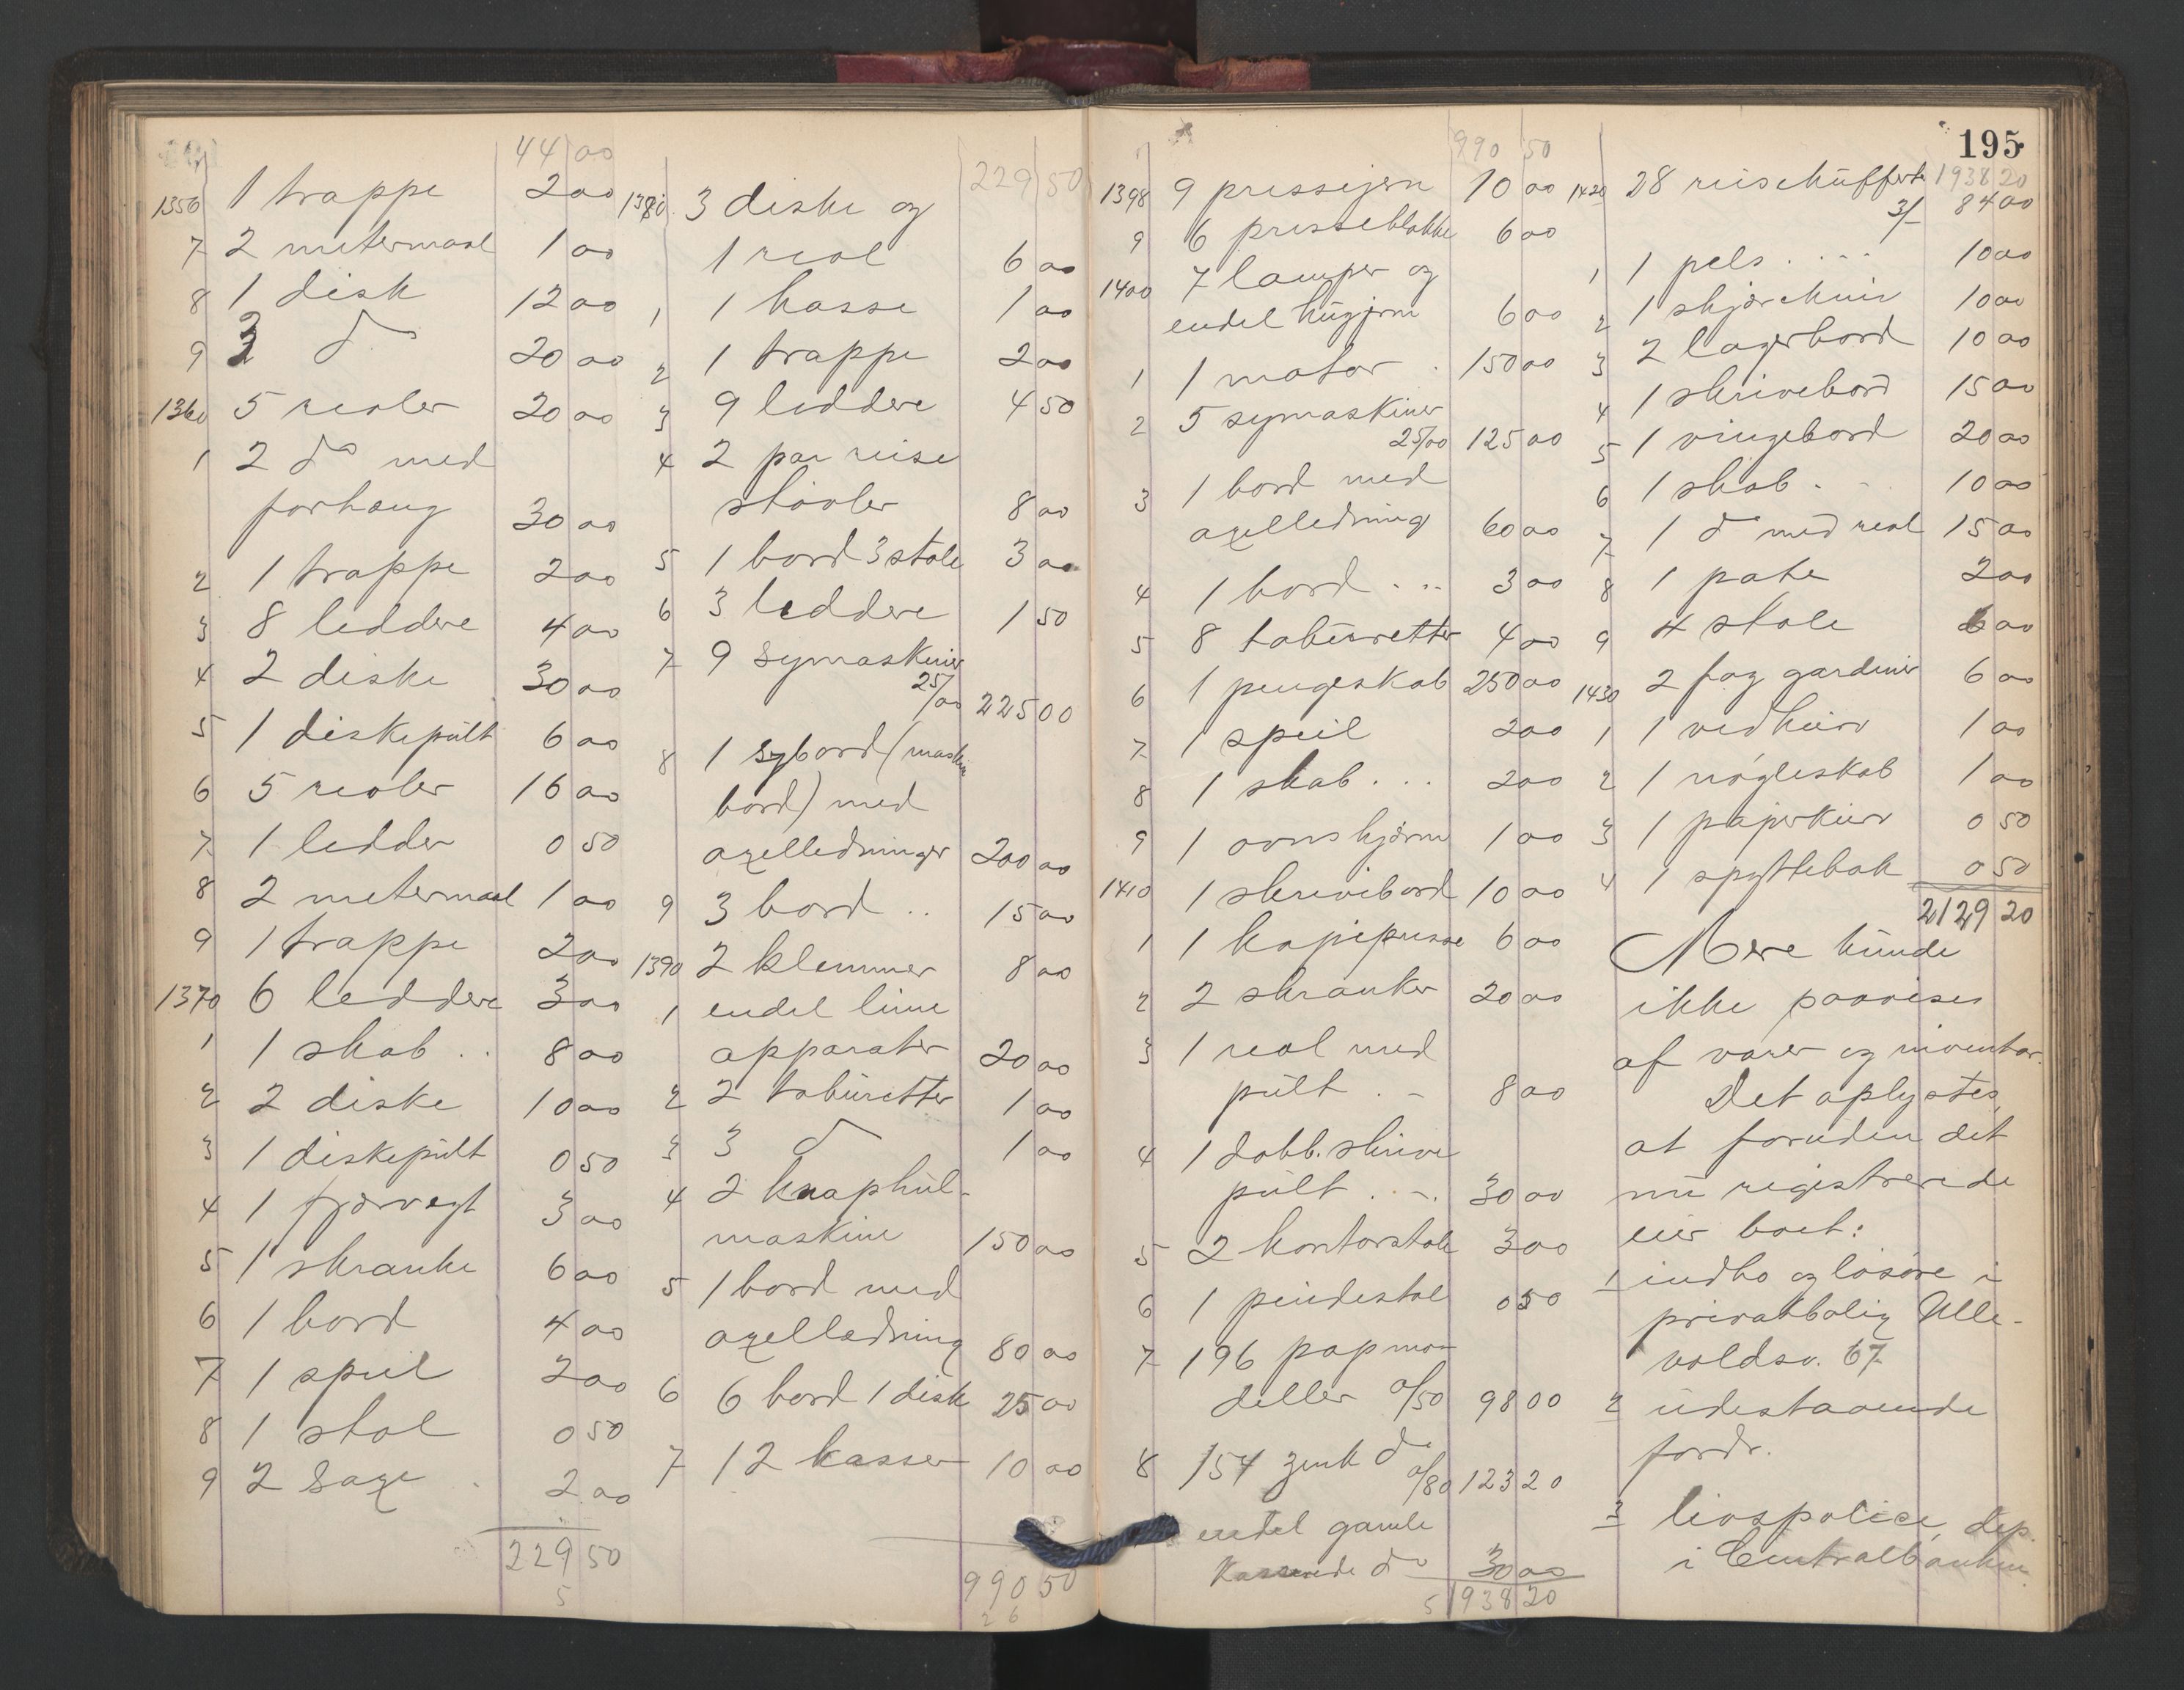 44 00
1356 1 trappe 2 00
7 2 metermaal 1 00
8 1 disk 12 00
9 3 do 20 00
1360 5 reoler 20 00
1 2 do med
forhæng 30 00
2 1 trappe 2 00
3 8 leddere 4 00
4 2 diske 30 00
5 1 diskepült 6 00
6 5 reoler 16 00
7 1 ledder 0 50
8 2 metermaal 1 00
9 1 trappe 2 00
1370 6 leddere 3 00
1 1 skab . . 8 00
2 2 diske 10 00
3 1 diskepült 0 50
4 1 fjærvegt 3 00
5 1 skranke 6 00
6 1 bord 4 00
7 1 speil 2 00
8 1 stol 0 50
9 2 saxe . 2 00
229 50
5
229 50
1380. 3 diske og
1 reol 6 00
1 1 kasse 1 00
2 1 trappe 2 00
3 9 leddere 4 50
4 2 par reise
støvler 8 00
5 1 bord 3 stole 3 00
6 3 leddere 1 50
7 9 symaskiner
25/00 225 00
8 1 sybord (maskin
bord) med
axelledninger 200 00
9 3 bord . . 15 00
1390 2 klemmer 8 00
1 endel lime
apparater 20 00
2 2 tabüretter 1 00
3 3 do 1 00
4 2 knaphül-
maskine 150 00
5 1 bord med
axelledning 80 00
6 6 bord 1 disk 25 00
7 12 kasser 10 00
990 50
26
195
990 50
1398 9 pressejern 10 00
9 6 presseblokke 6 00
1400 7 lamper og
endel hügjern 6 00
1 1 motor . 150 00
2 5 symaskiner
25/00 125 00
3 1 bord med
axelledning 60 00
4 1 bord . . . 3 00
5 8 tabüretter 4 00
6 1 pengeskab 250 00
7 1 speil 2 00
8 1 skab . . . 2 00
9 1 ovnskjærm 1 00
1410 1 skrivebord 10 00
1 1 kopipresse 6 00
2 2 skranker 20 00
3 1 reol med
pült . - 8 00
4 1 dobb. skrive
pült . - . 30 00
5 2 kontorstole 3 00
6 1 pindestol 0 50
7 196 papmo-
deller 0/50 98 00
8 154 zink do
0/80 123 20
endel gamle
Kasserede do 30 00
5 1938 20
1938 20
1420 28 reiseküfferte
3/- 84 00
1 1 pels . . . . 10 00
2 1 skjærekniv 10 00
3 2 lagerbord 10 00
4 1 skrivebord 15 00
5 1 vingebord 20 00
6 1 skab . - . 10 00
7 1 do med reol 15 00
8 1 pote 2 00
9 4 stole 6 00
1430 2 fag gardiner 6 00
1 1 vedkurv 1 00
2 1 nøgleskab 1 00
3 1 papirkurv 0 50
4 1 spyttebak 0 50
2129 20
Mere künde
ikke paavises
af varer og inventar.
Det oplystes,
at foruden det
nü registrerede
eier boet:
1 indbo og løsøre i
privatbolig Ulle-
voldsv. 67
2 üdestaaende
fordr.
3 livspolice, dep.
i Centralbanken.